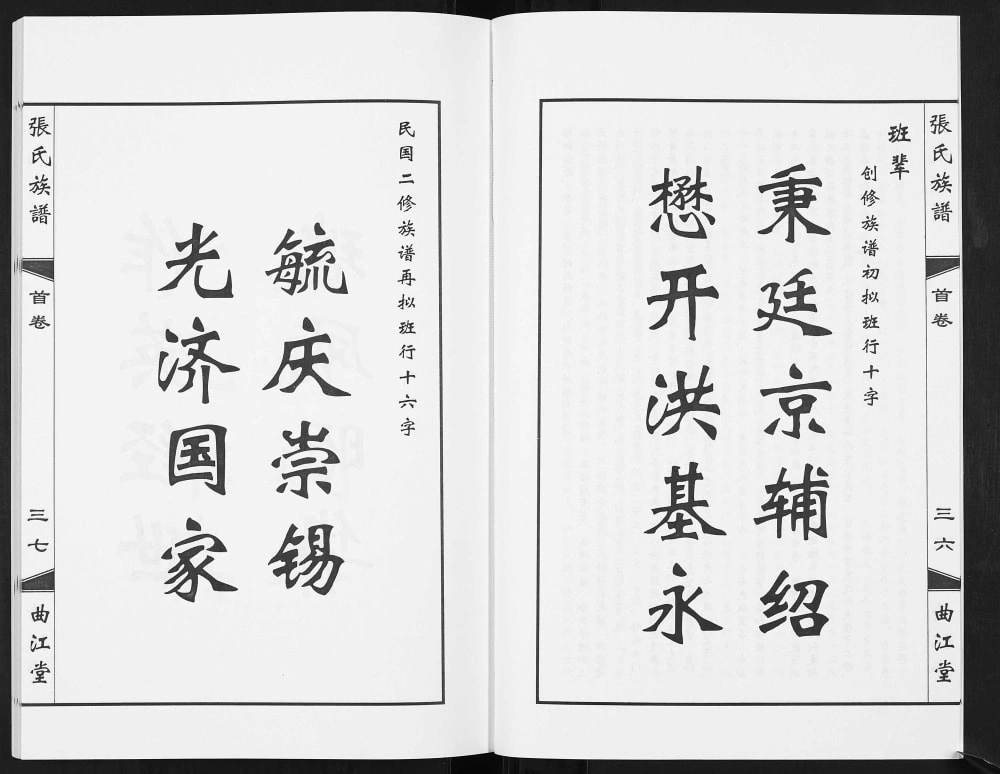 張氏族譜
首卷
三六
曲江堂
班辈
创修族谱初拟班行十字
秉廷京辅绍
懋开洪基永
民国二修族谱再拟班行十六字
毓庆崇锡
光济国家
張氏族譜
首卷
三七
曲江堂